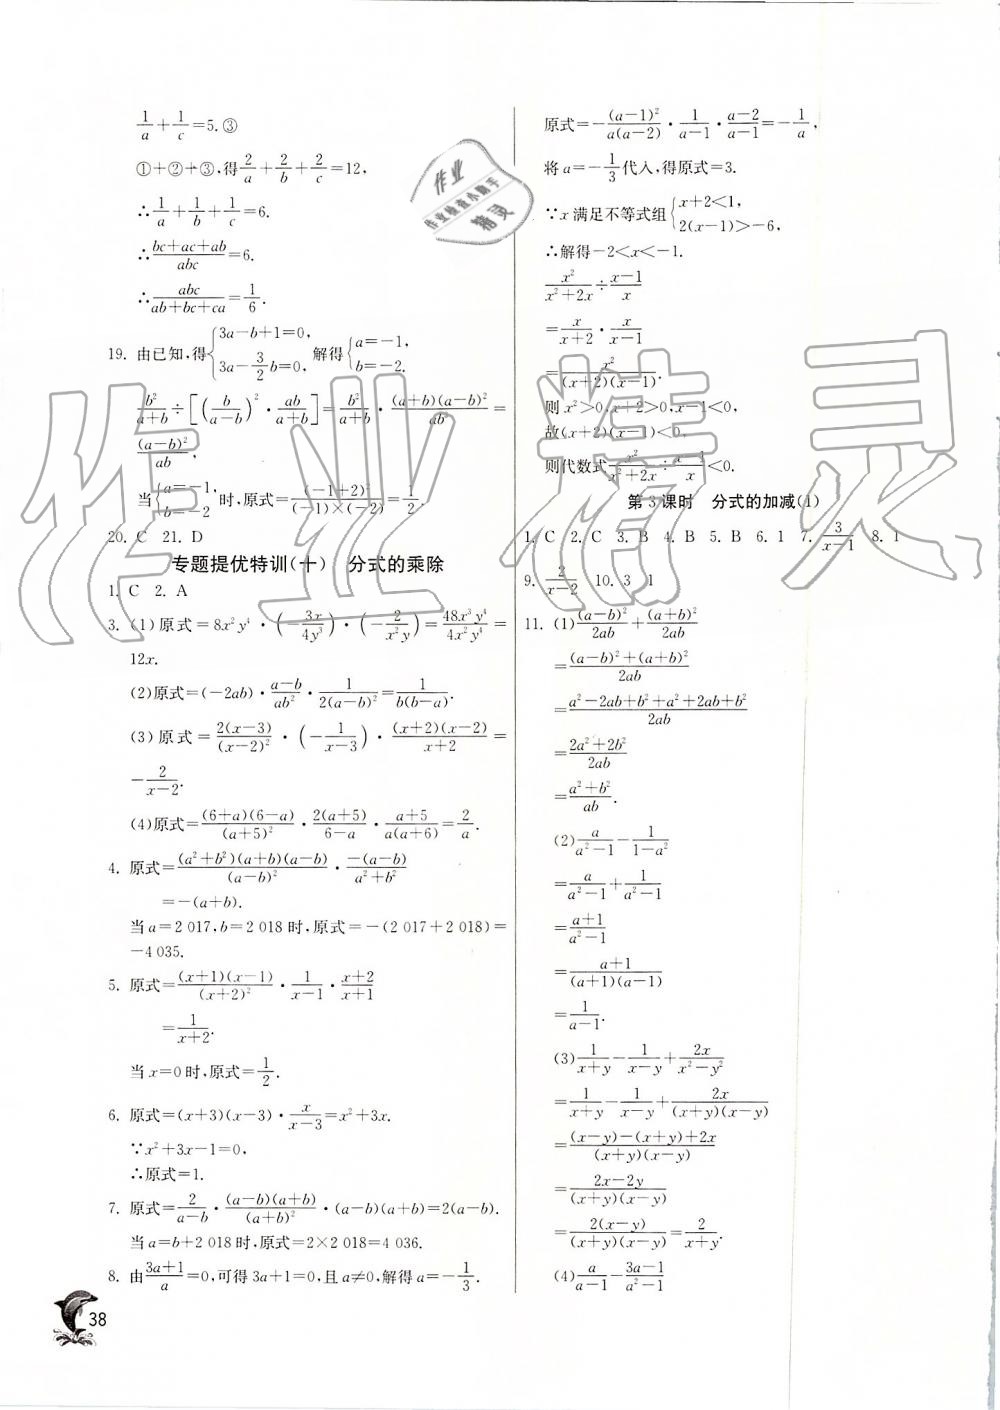 1/a+1/c=5.③
①+②+③,得2/a+2/b+2/c=12,
∴1/a+1/b+1/c=6.
∴(bc+ac+ab)/abc=6.
∴abc/(ab+bc+ca)=1/6.
19. 由已知,得{3a-b+1=0, 3a-3/2b=0, 解得{a=-1, b=-2.
b²/(a+b)÷[(b/(a-b))²·ab/(a+b)]=b²/(a+b)·(a+b)(a-b)²/ab³=
(a-b)²/ab,
当{a=-1, b=-2时,原式=(-1+2)²/((-1)×(-2))=1/2.
20. C 21. D
专题提优特训(十) 分式的乘除
1. C 2. A
3. (1)原式=8x²y⁴·(-3x/4y³)·(-2/x²y)=48x³y⁴/4x²y⁴=
12x.
(2)原式=(-2ab)·(a-b)/ab²·1/2(a-b)²=1/b(b-a).
(3)原式=2(x-3)/(x-2)²·(-1/(x-3))·(x+2)(x-2)/(x+2)=
-2/(x-2).
(4)原式=(6+a)(6-a)/(a+5)²·2(a+5)/(6-a)·(a+5)/a(a+6)=2/a.
4. 原式=(a²+b²)(a+b)(a-b)/(a-b)²·-(a-b)/(a²+b²)
=-(a+b).
当a=2 017,b=2 018时,原式=-(2 017+2 018)=
-4 035.
5. 原式=(x+1)(x-1)/(x+2)²·1/(x-1)·(x+2)/(x+1)
=1/(x+2).
当x=0时,原式=1/2.
6. 原式=(x+3)(x-3)·x/(x-3)=x²+3x.
∵x²+3x-1=0,
∴原式=1.
7. 原式=2/(a-b)·(a-b)(a+b)/(a+b)²·(a-b)(a+b)=2(a-b).
当a=b+2 018时,原式=2×2 018=4 036.
8. 由(3a+1)/a=0,可得3a+1=0,且a≠0,解得a=-1/3.
38
原式=-(a-1)²/a(a-2)·1/(a-1)·(a-2)/(a-1)=-1/a,
将a=-1/3代入,得原式=3.
∵x满足不等式组{x+2<1, 2(x-1)>-6,
∴解得-2<x<-1.
x²/(x²+2x)÷(x-1)/x
=x/(x+2)·x/(x-1)
=x²/(x+2)(x-1).
则x²>0,x+2>0,x-1<0,
故(x+2)(x-1)<0,
则代数式x²/(x²+2x)÷(x-1)/x<0.
第3课时 分式的加减(1)
1. C 2. C 3. B 4. B 5. B 6. 1 7. 3/(x-1) 8. 1
9. 2/(x-2) 10. 3 1
11. (1)(a-b)²/2ab+(a+b)²/2ab
=((a-b)²+(a+b)²)/2ab
=(a²-2ab+b²+a²+2ab+b²)/2ab
=(2a²+2b²)/2ab
=(a²+b²)/ab.
(2)a/(a²-1)-1/(1-a²)
=a/(a²-1)+1/(a²-1)
=(a+1)/(a²-1)
=(a+1)/(a+1)(a-1)
=1/(a-1).
(3)1/(x+y)-1/(x-y)+2x/(x²-y²)
=1/(x+y)-1/(x-y)+2x/(x+y)(x-y)
=((x-y)-(x+y)+2x)/(x+y)(x-y)
=(2x-2y)/(x+y)(x-y)
=2(x-y)/(x+y)(x-y)=2/(x+y).
(4)a/(a-1)-(3a-1)/(a²-1)
作业
作业检查小助手
精灵
作业精灵